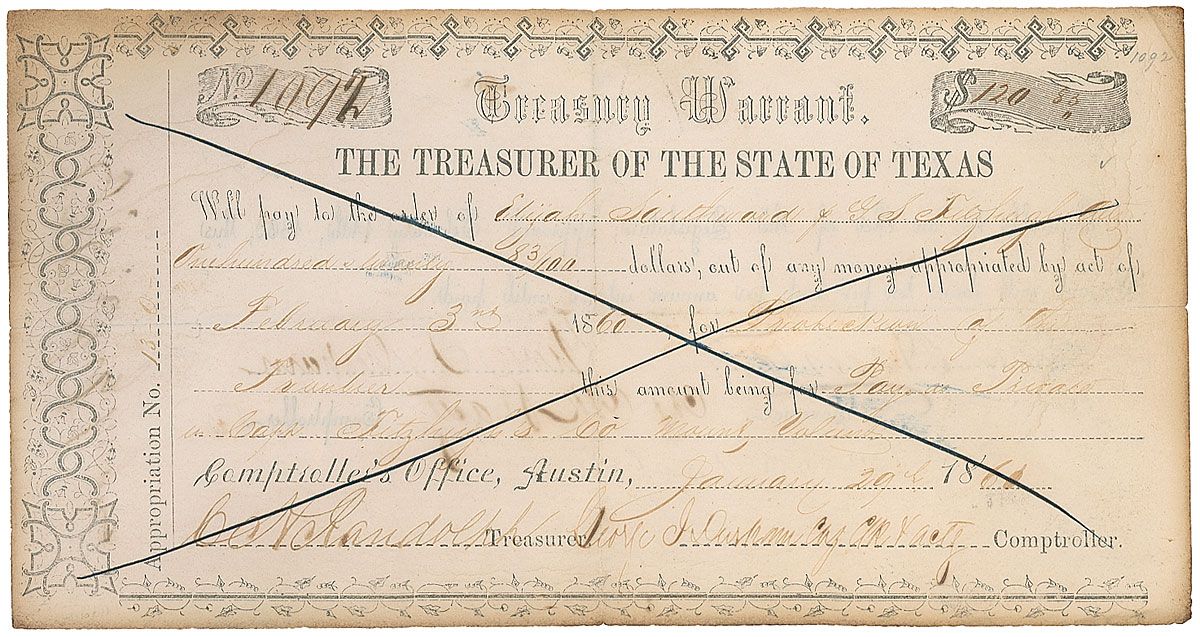 1092
No 1092
Treasury Warrant.
$ 120 83
THE TREASURER OF THE STATE OF TEXAS
Will pay to the order of Elijah
One hundred & twenty 83/100 dollars, out of any money appropriated by act of
February 3rd 1860, for Protection of the
Frontier this amount being for Pay Private
in Capt Fitzhugh's Co Mount Volunteers
Comptroller's Office, Austin, January 29th 186
C H Randolph Treasurer George J. Durham Chf Clk & actg Comptroller.
Appropriation No.